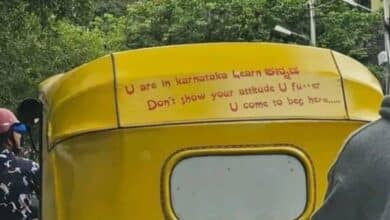 U are in karnataka Learn ಕನ್ನಡ
Don't show your attitude U fu**er
U come to beg here.....